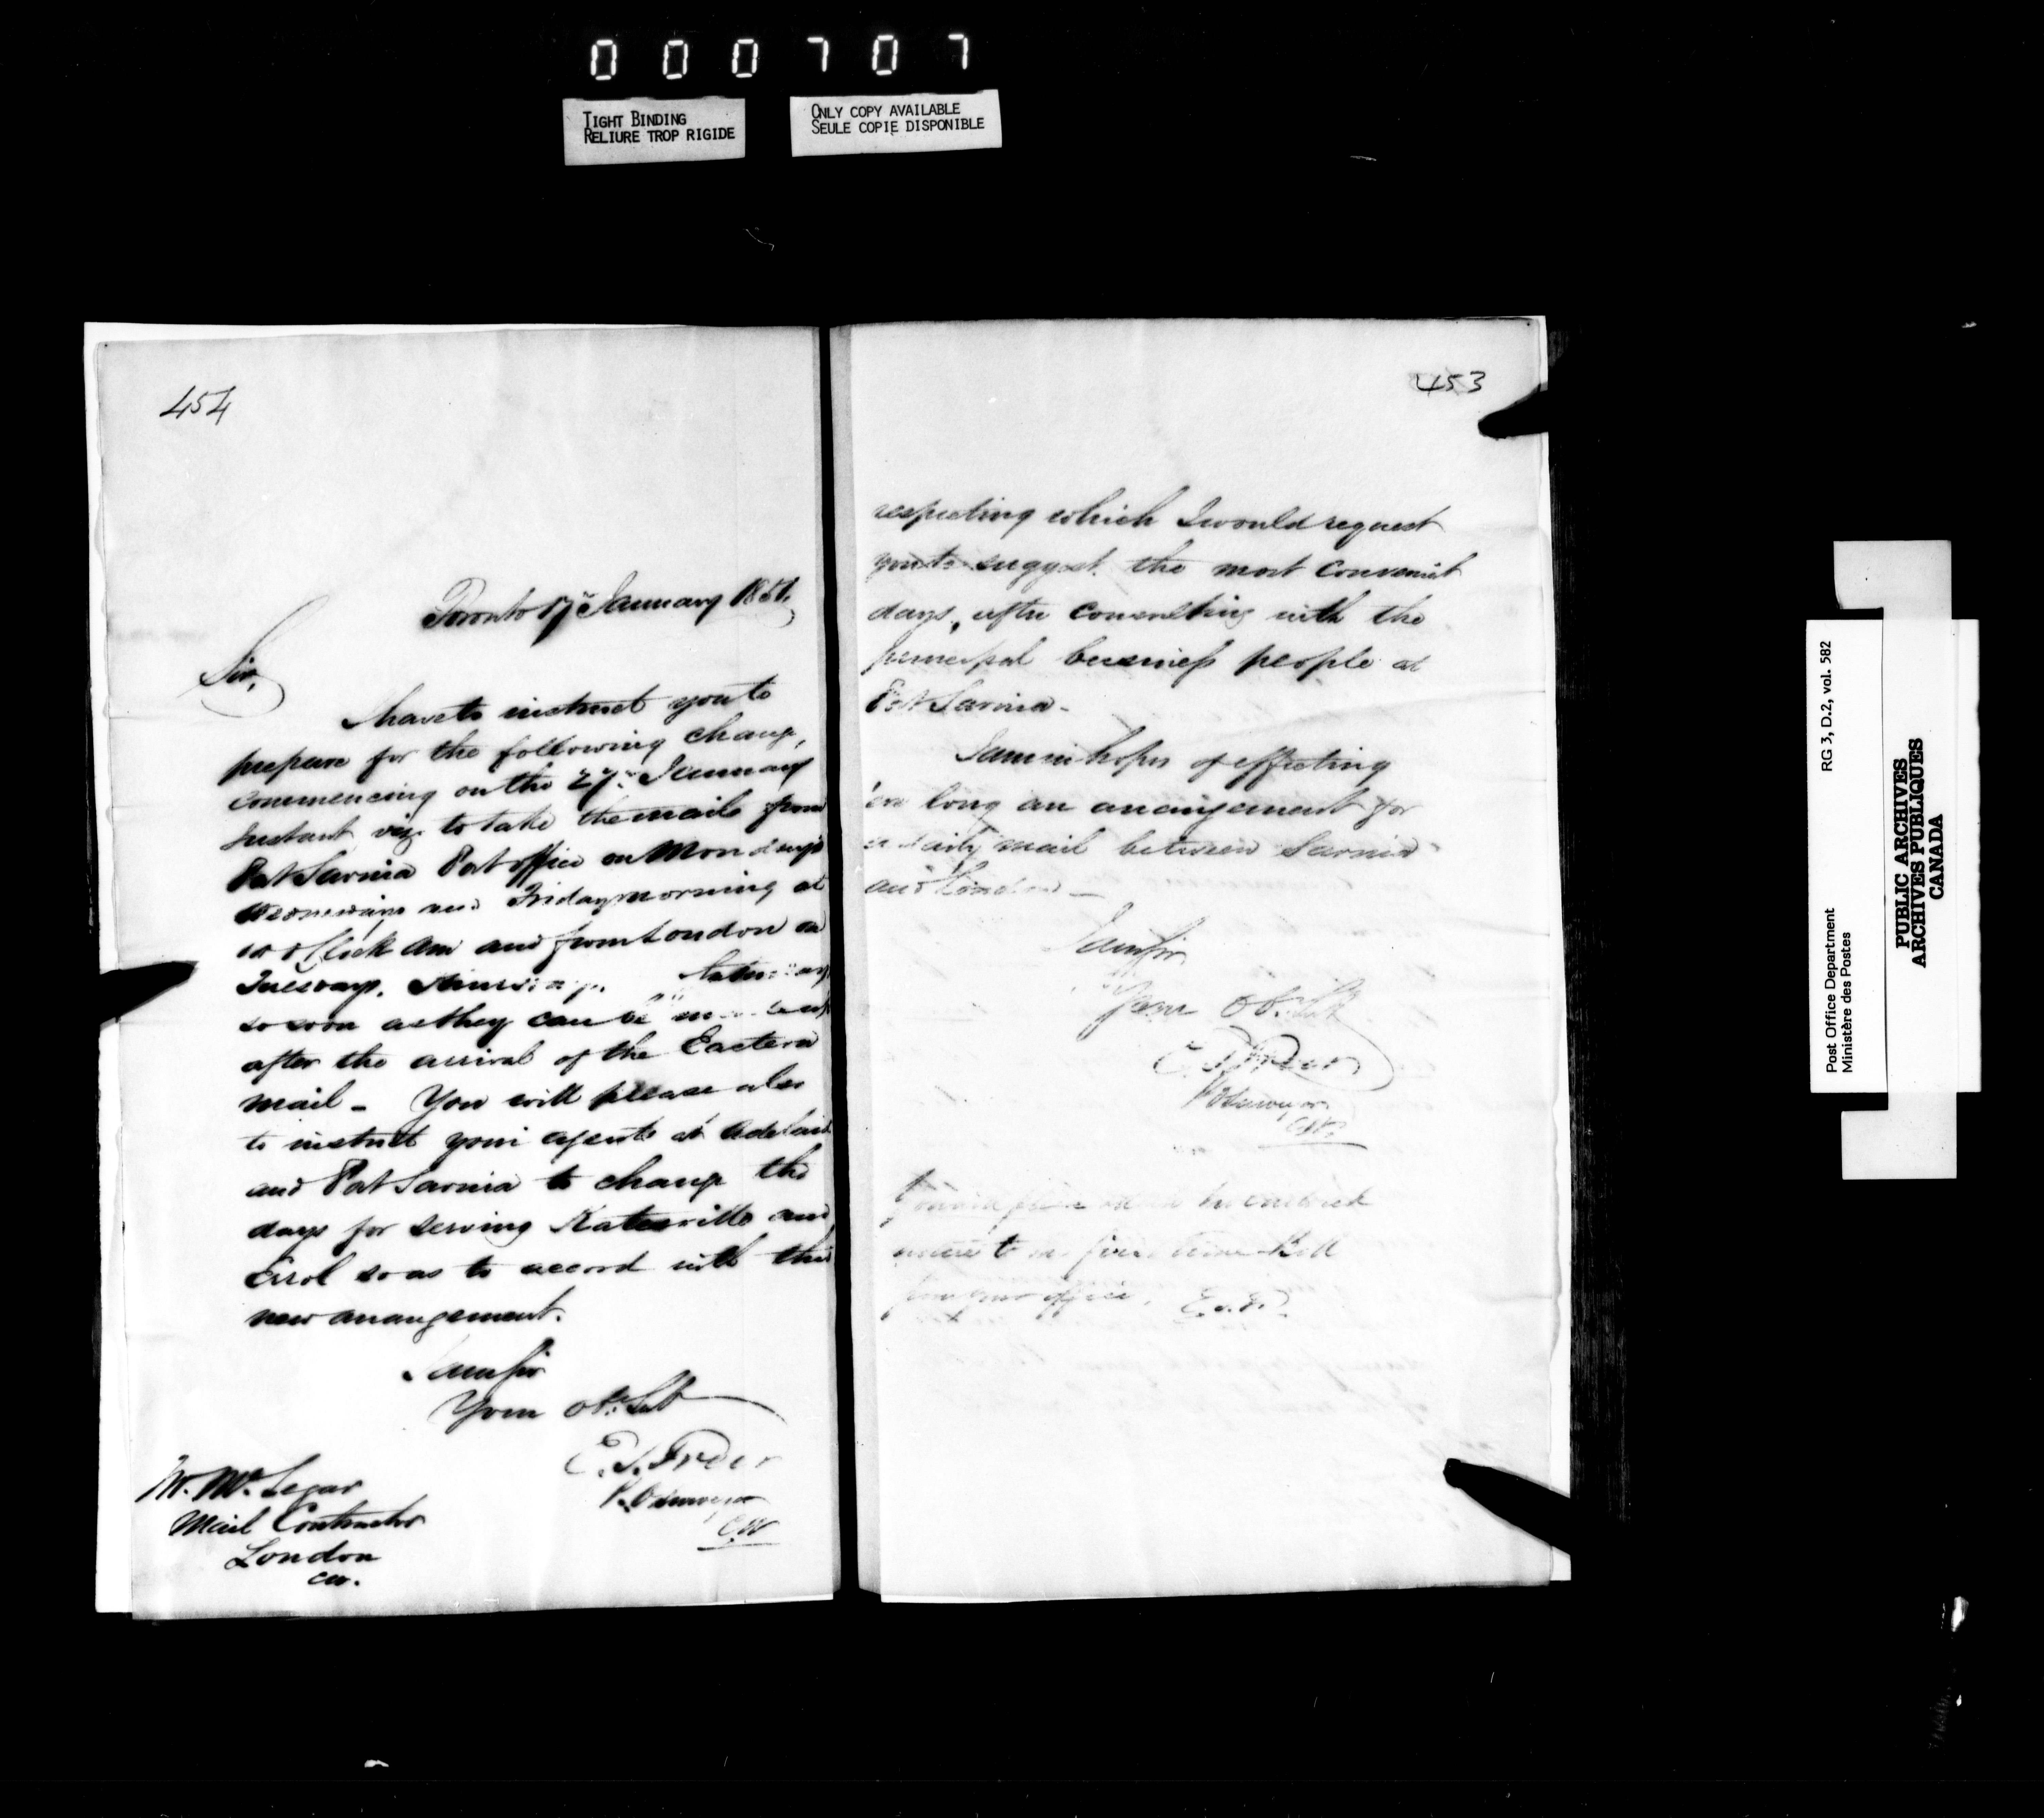 000707
TIGHT BINDING
RELIURE TROP RIGIDE
ONLY COPY AVAILABLE
SEULE COPIE DISPONIBLE
454
Toronto 17 January 1851.
Sir,
I have to instruct you to
prepare for the following change,
commencing on the 27th January
Instant viz to take the mails from
Port Sarnia Post office on Mondays
Wednesdays and Friday morning at
o Clock am and from London on
Tuesdays, Thursdays, Saturdays
so soon as they can be
after the arrival of the Eastern
mail - You will please also
to instruct your agents at Adelaide
and Port Sarnia to change the
days for serving Katesville and
Errol so as to accord with this
new arrangement.
I am Sir
Your Ob. Svt
E. S. Freer
P.O Surveyor
C.W
W. Mc.
Mail Contractor
London
CW.
453
respecting which I would request
you to suggest the most convenient
days, after consulting with the
principal business people at
Port Sarnia -
I am in hopes of effecting
ere long an arrangement for
a daily mail between Sarnia
and London -
I am Sir
Your Ob. Svt
E. S. Freer
P O Surveyor
C.W.
time Bill
from your office. E.S.F.
Post Office Department
Ministère des Postes
RG 3, D.2, vol. 582
PUBLIC ARCHIVES
ARCHIVES PUBLIQUES
CANADA